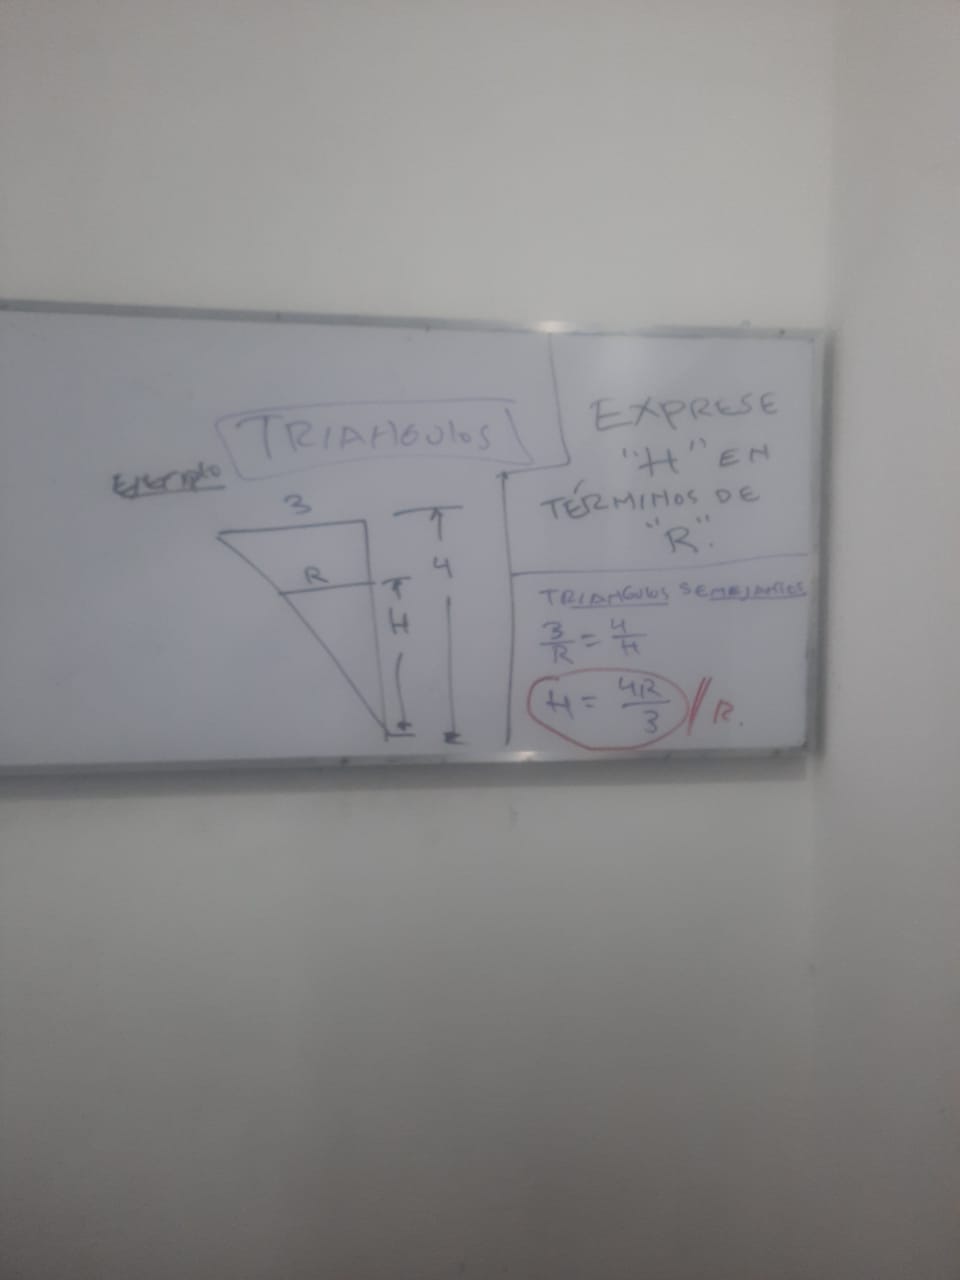 TRIANGULOS
Ejemplo
3
R
H
4
EXPRESE
"H" EN
TÉRMINOS DE
"R".
TRIANGULOS SEMEJANTES
3/R = 4/H
H = 4R/3 // R.